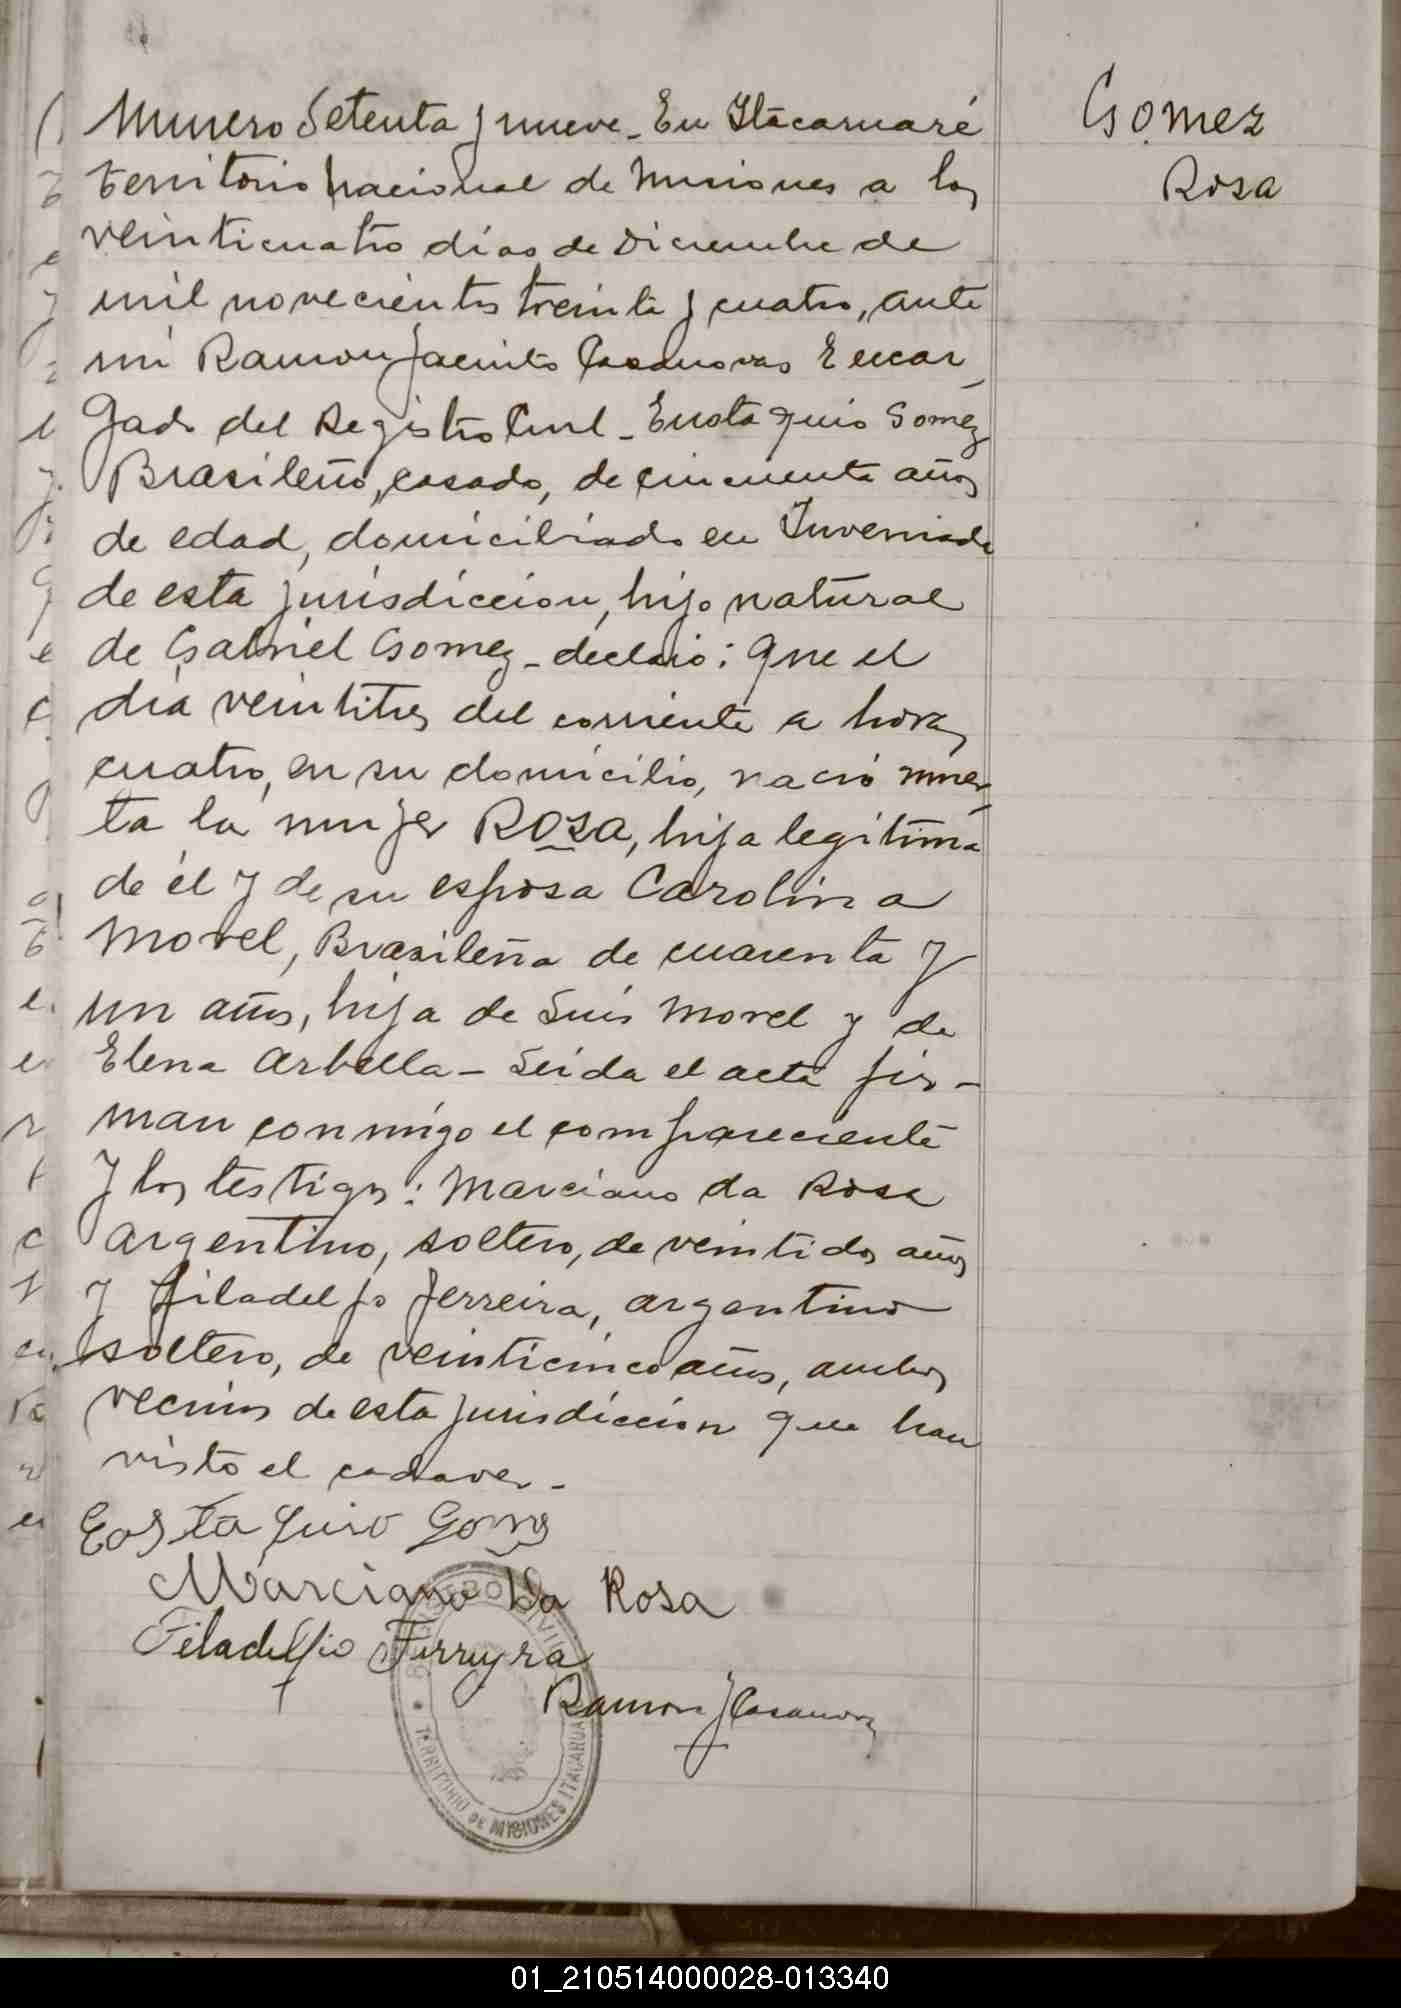 Numero Setenta y nueve - En Itacaruaré
territorio nacional de Misiones a los
veinticuatro días de Diciembre de
mil novecientos treinta y cuatro, ante
mi Ramon Jacinto Casanovas Encar
gado del Registro Civil - Eustaquio Gomez
Brasileño, casado, de cincuenta años
de edad, domiciliado en Invernada
de esta jurisdiccion, hijo natural
de Gabriel Gomez - declaró: Que el
día veintitres del corriente a horas
cuatro, en su domicilio, nació muer
ta la mujer ROSA, hija legítima
de él y de su esposa Carolina
Morel, Brasileña de cuarenta y
un años, hija de Luis Morel y de
Elena Arbella - Leida el acta fir-
man conmigo el compareciente
y los testigos: Marciano da Rosa
argentino, soltero, de veintidos años
y Filadelfo Ferreira, argentino
soltero, de veinticinco años, ambos
vecinos de esta jurisdicción que han
visto el cadaver -
Eostaquio Gomes
Marciano Da Rosa
Filadelfio Ferreyra
Ramon J Casanovas
REGISTRO CIVIL
TERRITORIO DE MISIONES ITACARUA
Gomez
Rosa
01_210514000028-013340